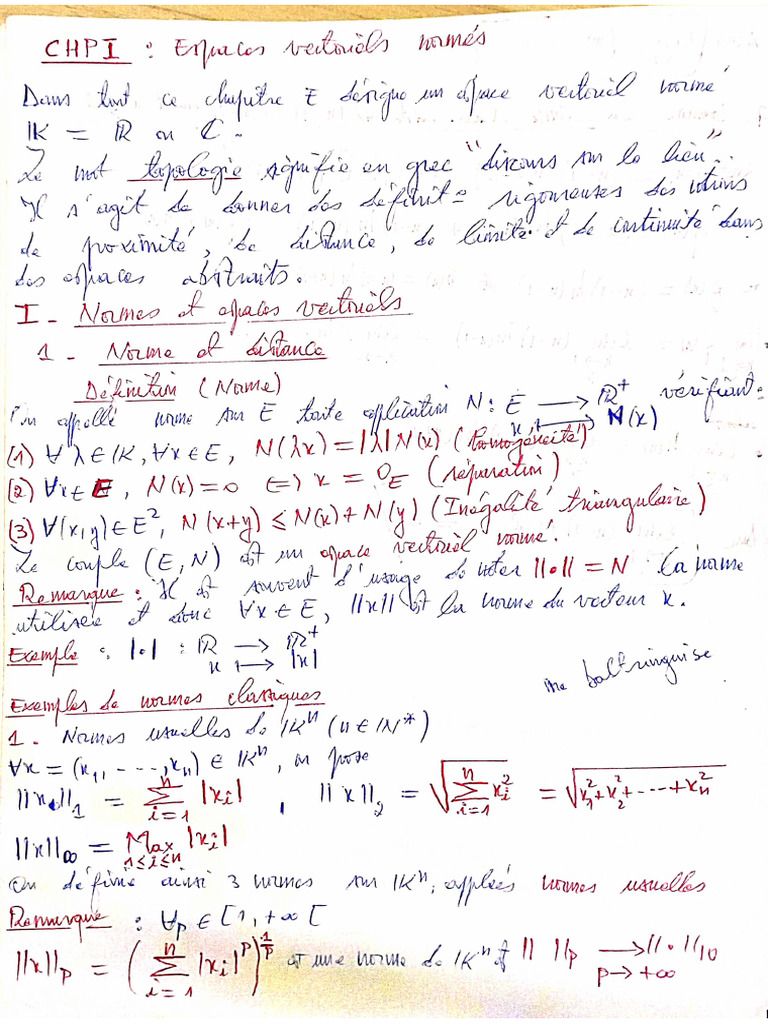 CHPI : Espaces vectoriels normés
Dans tout ce chapitre E désigne un espace vectoriel normé
IK = ℝ ou ℂ.
Le mot topologie signifie en grec "discours sur le lieu".
Il s'agit de donner des définit° rigoureuses des notions
de proximité, de distance, de limite et de continuité dans
des espaces abstraits.
I - Normes et espaces vectoriels
1 - Norme et distance
Définition (Norme)
On appelle norme sur E toute application N : E → ℝ⁺ vérifiant :
x ↦ N(x)
(1) ∀ λ ∈ IK, ∀x ∈ E, N(λx) = |λ| N(x) (homogénéité)
(2) ∀x ∈ E, N(x) = 0 ⟺ x = 0_E (séparation)
(3) ∀(x,y) ∈ E², N(x+y) ≤ N(x) + N(y) (Inégalité triangulaire)
Le couple (E, N) est un espace vectoriel normé.
Remarque : Il est souvent d'usage de noter ||•|| = N la norme
utilisée et donc ∀x ∈ E, ||x|| est la norme du vecteur x.
Exemple : |•| : ℝ → ℝ⁺
x ↦ |x|
Exemples de normes classiques
1. Normes usuelles de IKⁿ (n ∈ IN*)
∀x = (x₁, ---, xₙ) ∈ IKⁿ, on pose
||x||₁ = ∑_{i=1}^{n} |xᵢ|, ||x||₂ = √(∑_{i=1}^{n} xᵢ²) = √(x₁² + x₂² + --- + xₙ²)
||x||∞ = Max_{1≤i≤n} |xᵢ|
On définie ainsi 3 normes sur IKⁿ, applées normes usuelles
Remarque : ∀p ∈ [1, +∞[
||x||_p = (∑_{i=1}^{n} |xᵢ|^p)^{1/p} est une norme de IKⁿ et || ||_p → ||•||
p → +∞